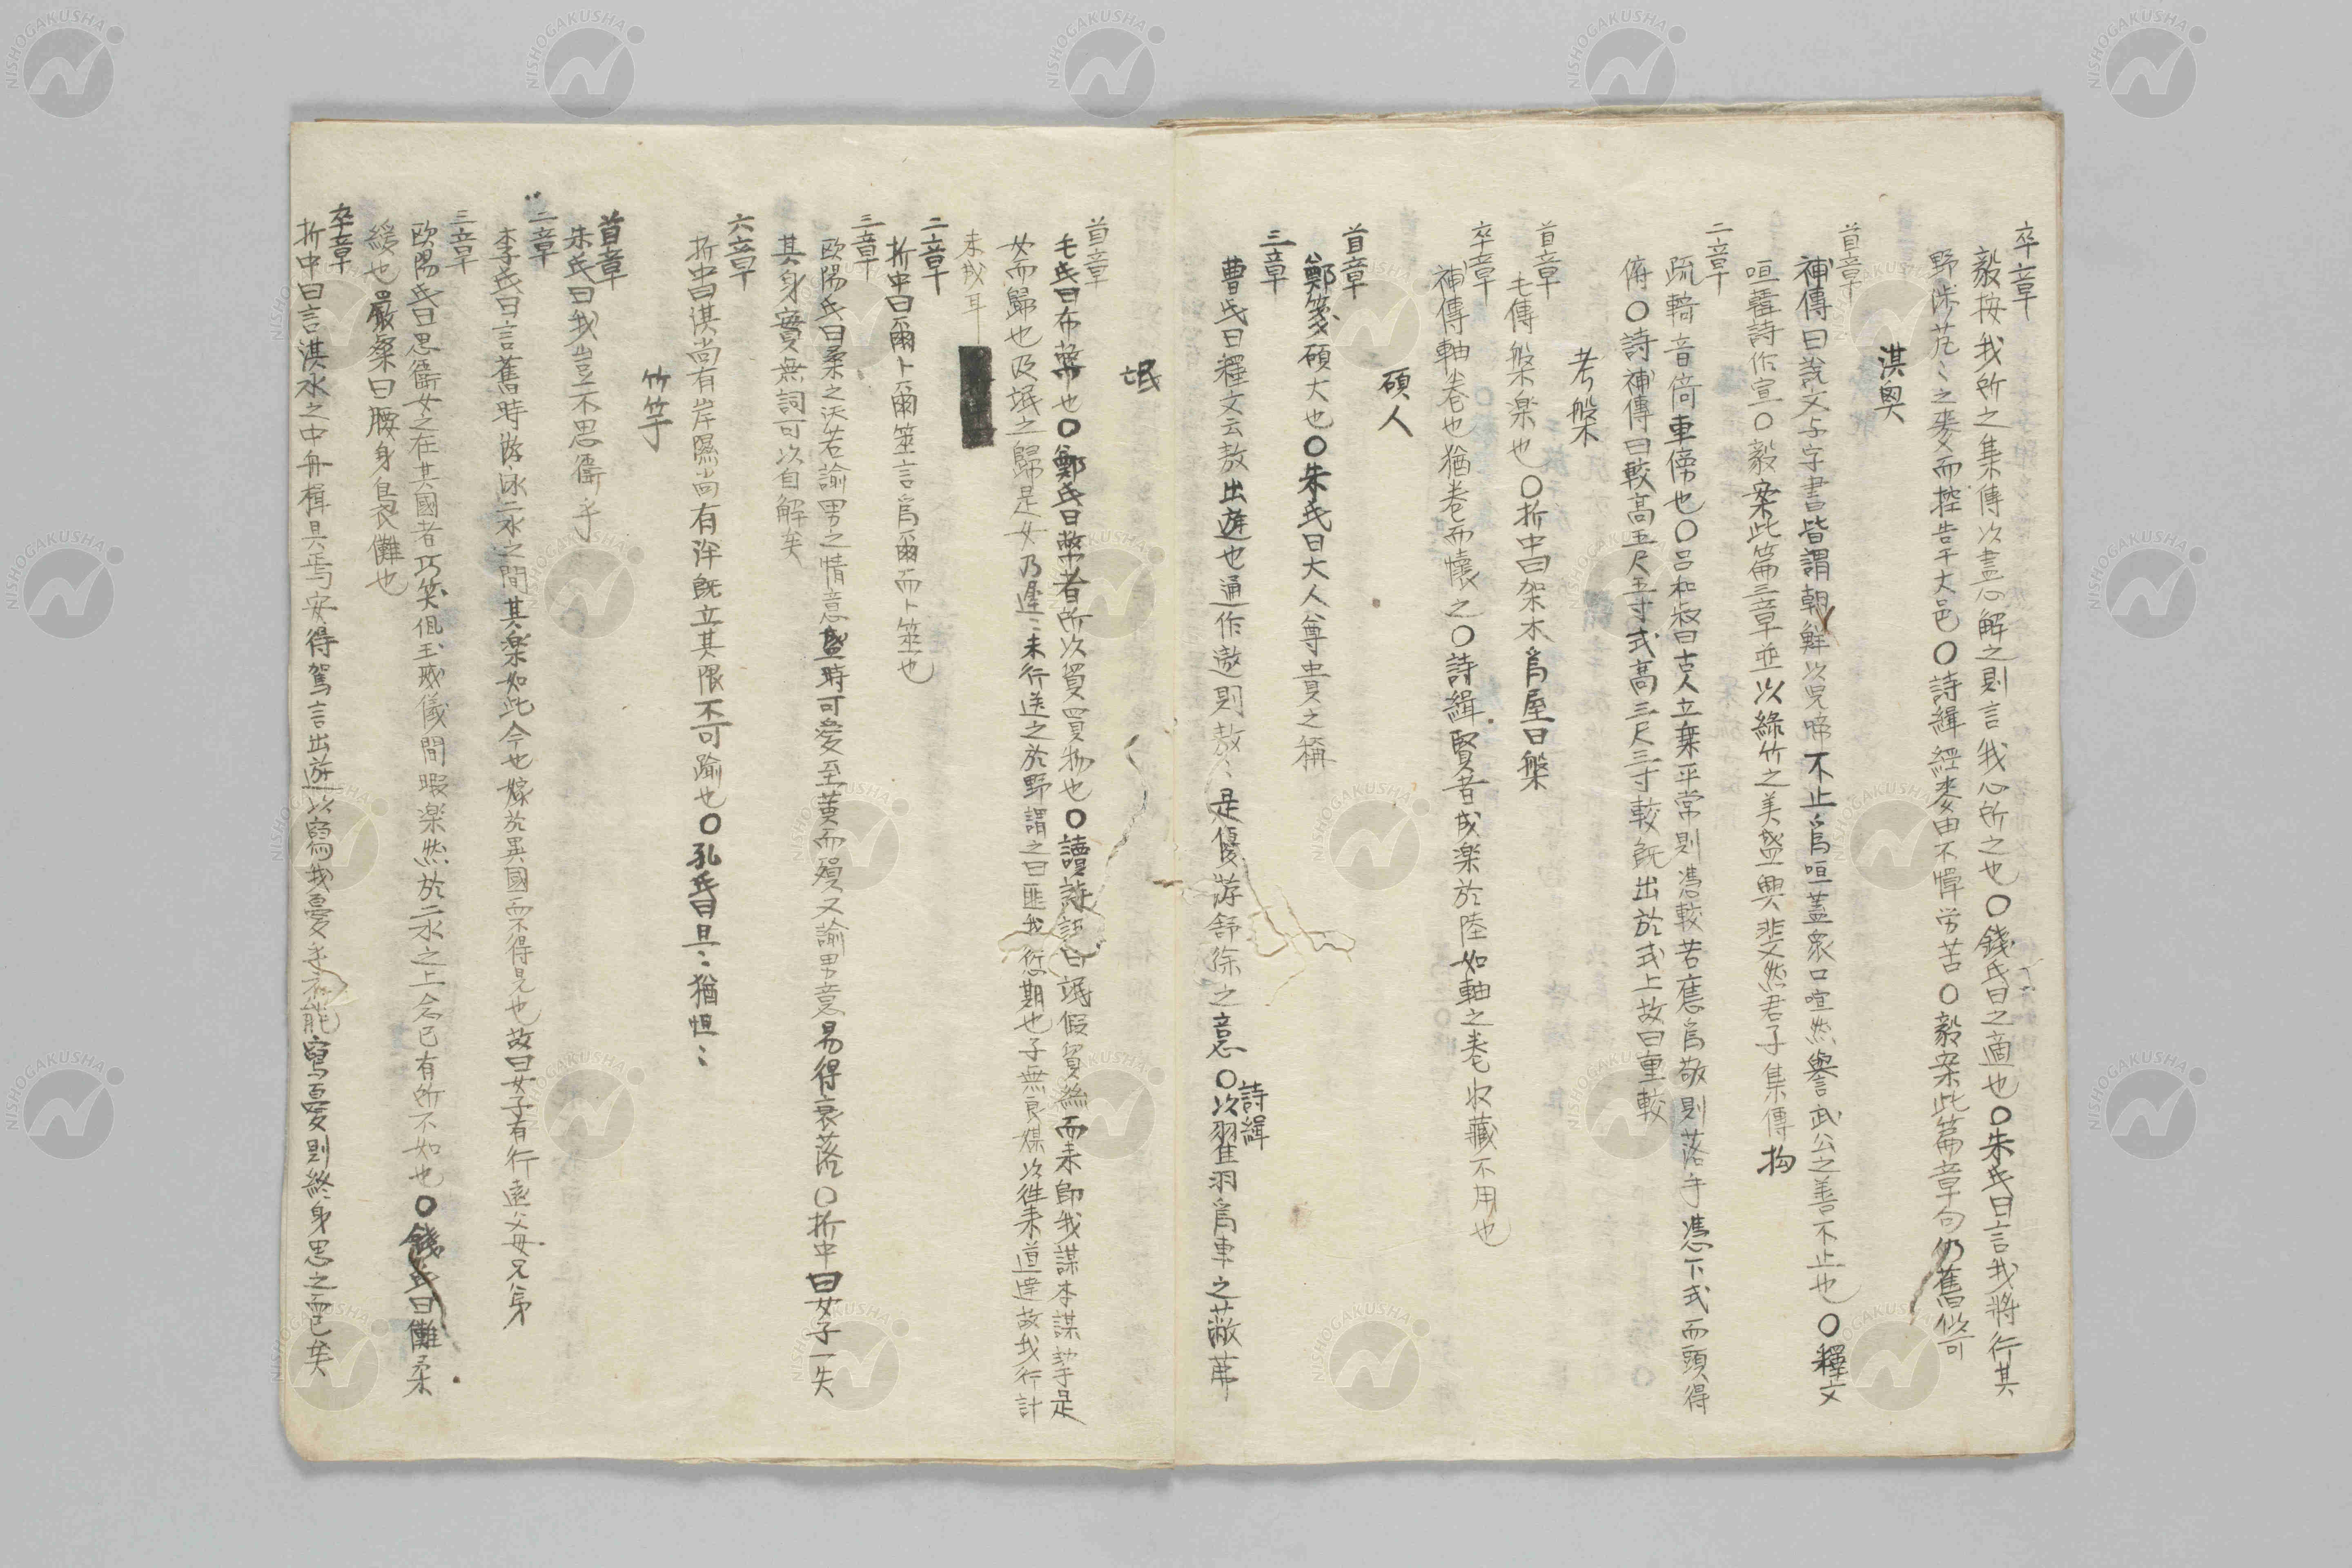 卒章
毅按我所之集傳以盡心解之則言我心所之也〇錢氏曰之適也〇朱氏曰言我將行其
野涉芃〻之麥而控告于大邑〇詩緝經麥由不憚労苦〇毅案此篇章句仍舊似可
淇奥
首章
補傳曰説文与字書皆謂朝鮮以児啼不止為咺蓋衆口喧然譽武公之善不止也〇釋文
咺韓詩作宣〇毅案此篇三章並以綠竹之美盛興斐然君子集傳拘
二章
疏輢音倚車傍也〇呂和叔曰古人立乗平常則憑較若應為敬則落手憑下式而頭得
俯〇詩補傳曰較高五尺五寸式高三尺三寸較既出於式上故曰重較
考槃
首章
毛傳槃楽也〇折中曰架木為屋曰槃
卒章
補傳軸卷也猶卷而懷之〇詩緝賢者成楽於陸如軸之卷收藏不用也
碩人
首章
鄭箋碩大也〇朱氏曰大人尊貴之稱
三章
曹氏曰釋文云敖出遊也通作遨則敖〻是優游舒徐之意〇詩緝以翟羽為車之蔽茀
氓
首章
毛氏曰布幣也〇鄭氏曰幣者所以貿買物也〇讀詩記曰氓假貿絲而来即我謀本謀挈是
女而歸也及氓之歸是女乃遲〻未行送之於野謂之曰匪我愆期也子無良媒以往来道達故我行計
未成耳
二章
折中曰爾卜爾筮言為爾而卜筮也
三章
歐陽氏曰桑之沃若諭男之情意盛時可愛至黄而殞又諭男意易得衰落〇折中曰女子一失
其身實無詞可以自解矣
六章
折中曰淇尚有岸隰尚有泮既立其限不可踰也〇孔氏曰旦〻猶怛〻
竹竿
首章
朱氏曰我豈不思衞乎
二章
李氏曰言舊時游泳二水之間其楽如此今也嫁於異國而不得見也故曰女子有行遠父母兄弟
三章
歐陽氏曰思衞女之在其國者巧笑佩玉威儀間暇楽然於二水之上念已有所不如也〇錢氏曰儺柔
緩也嚴粲曰腰身裊儺也
卒章
折中曰言淇水之中舟楫具焉安得駕言出遊以寫我憂乎不能寫憂則終身思之而已矣